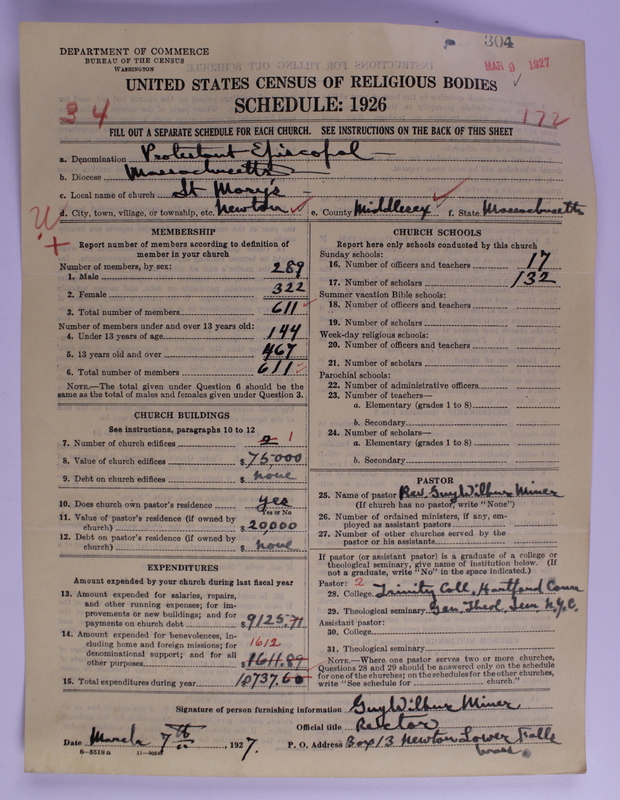 304
DEPARTMENT OF COMMERCE
BUREAU OF THE CENSUS
WASHINGTON
MAR 9 1927
UNITED STATES CENSUS OF RELIGIOUS BODIES
SCHEDULE: 1926
34
172
FILL OUT A SEPARATE SCHEDULE FOR EACH CHURCH. SEE INSTRUCTIONS ON THE BACK OF THIS SHEET
a. Denomination Protestant Episcopal
b. Diocese Massachusetts
c. Local name of church St Mary's
d. City, town, village, or township, etc. Newton e. County Middlesex f. State Massachusetts
MEMBERSHIP
Report number of members according to definition of
member in your church
Number of members, by sex:
1. Male 289
2. Female 322
3. Total number of members 611
Number of members under and over 13 years old:
4. Under 13 years of age 144
5. 13 years old and over 467
6. Total number of members 611
NOTE.—The total given under Question 6 should be the
same as the total of males and females given under Question 3.
CHURCH BUILDINGS
See instructions, paragraphs 10 to 12
7. Number of church edifices 2 1
8. Value of church edifices $75,000
9. Debt on church edifices $ none
10. Does church own pastor's residence yes
Yes or No
11. Value of pastor's residence (if owned by
church) $20,000
12. Debt on pastor's residence (if owned by
church) $ none
EXPENDITURES
Amount expended by your church during last fiscal year
13. Amount expended for salaries, repairs,
and other running expenses; for im-
provements or new buildings; and for
payments on church debt $9125.71
14. Amount expended for benevolences, in-
cluding home and foreign missions; for
denominational support; and for all
other purposes 1612 $1611.89
15. Total expenditures during year 10737.60
CHURCH SCHOOLS
Report here only schools conducted by this church
Sunday schools:
16. Number of officers and teachers 17
17. Number of scholars 132
Summer vacation Bible schools:
18. Number of officers and teachers
19. Number of scholars
Week-day religious schools:
20. Number of officers and teachers
21. Number of scholars
Parochial schools:
22. Number of administrative officers
23. Number of teachers—
a. Elementary (grades 1 to 8)
b. Secondary
24. Number of scholars—
a. Elementary (grades 1 to 8)
b. Secondary
PASTOR
25. Name of pastor Rev. Guy Wilbur Miner
(If church has no pastor, write "None")
26. Number of ordained ministers, if any, em-
ployed as assistant pastors
27. Number of other churches served by the
pastor or his assistants
If pastor (or assistant pastor) is a graduate of a college or
theological seminary, give name of institution below. (If
not a graduate, write "No" in the space indicated.)
Pastor: 2
28. College Trinity Coll. Hartford Conn
29. Theological seminary Gen. Theol. Sem N.Y.C.
Assistant pastor:
30. College
31. Theological seminary
NOTE.—Where one pastor serves two or more churches,
Questions 28 and 29 should be answered only on the schedule
for one of the churches; on the schedules for the other churches,
write "See schedule for church."
Signature of person furnishing information Guy Wilbur Miner
Official title Rector
Date March 7th, 1927. P. O. Address Box 13 Newton Lower Falls
Mass.
6-5518a